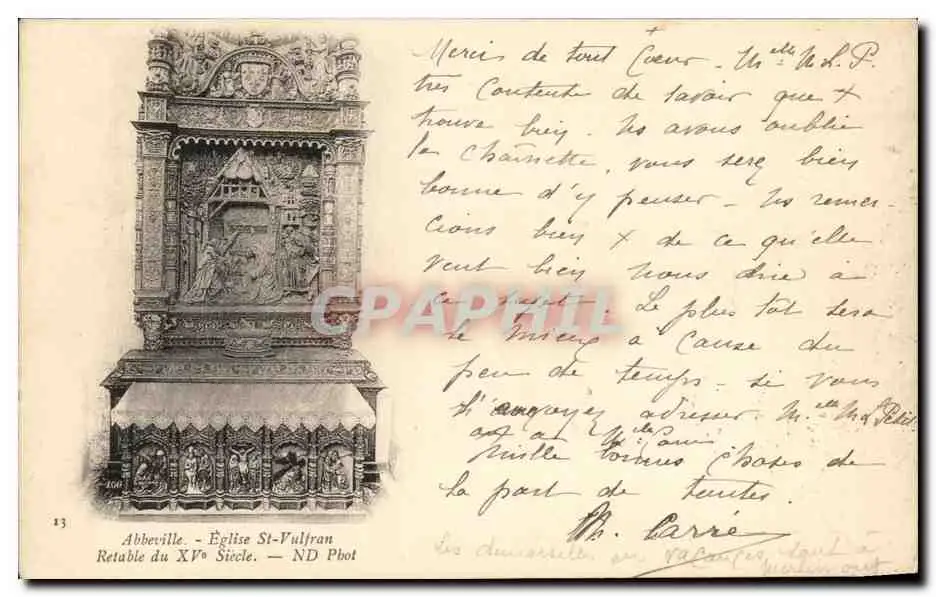 Merci de tout Coeur - Melle M L. P.
très Contente de savoir que +
trouva bien. Ns avons oublié
la Chaînette, vous serez bien
bonne d'y penser - Ns remer-
cions bien + de ce qu'elle
veut bien nous dire à
ce sujet. Le plus tôt sera
le mieux à Cause du
peu de temps - si vous
adresser Melle M L Petit
Mille bonnes choses de
la part de toutes.
Th. Carré
Les demoiselles en vacances, sont à
CPAPHIL
13
Abbeville. - Église St-Vulfran
Retable du XVe Siècle. - ND Phot